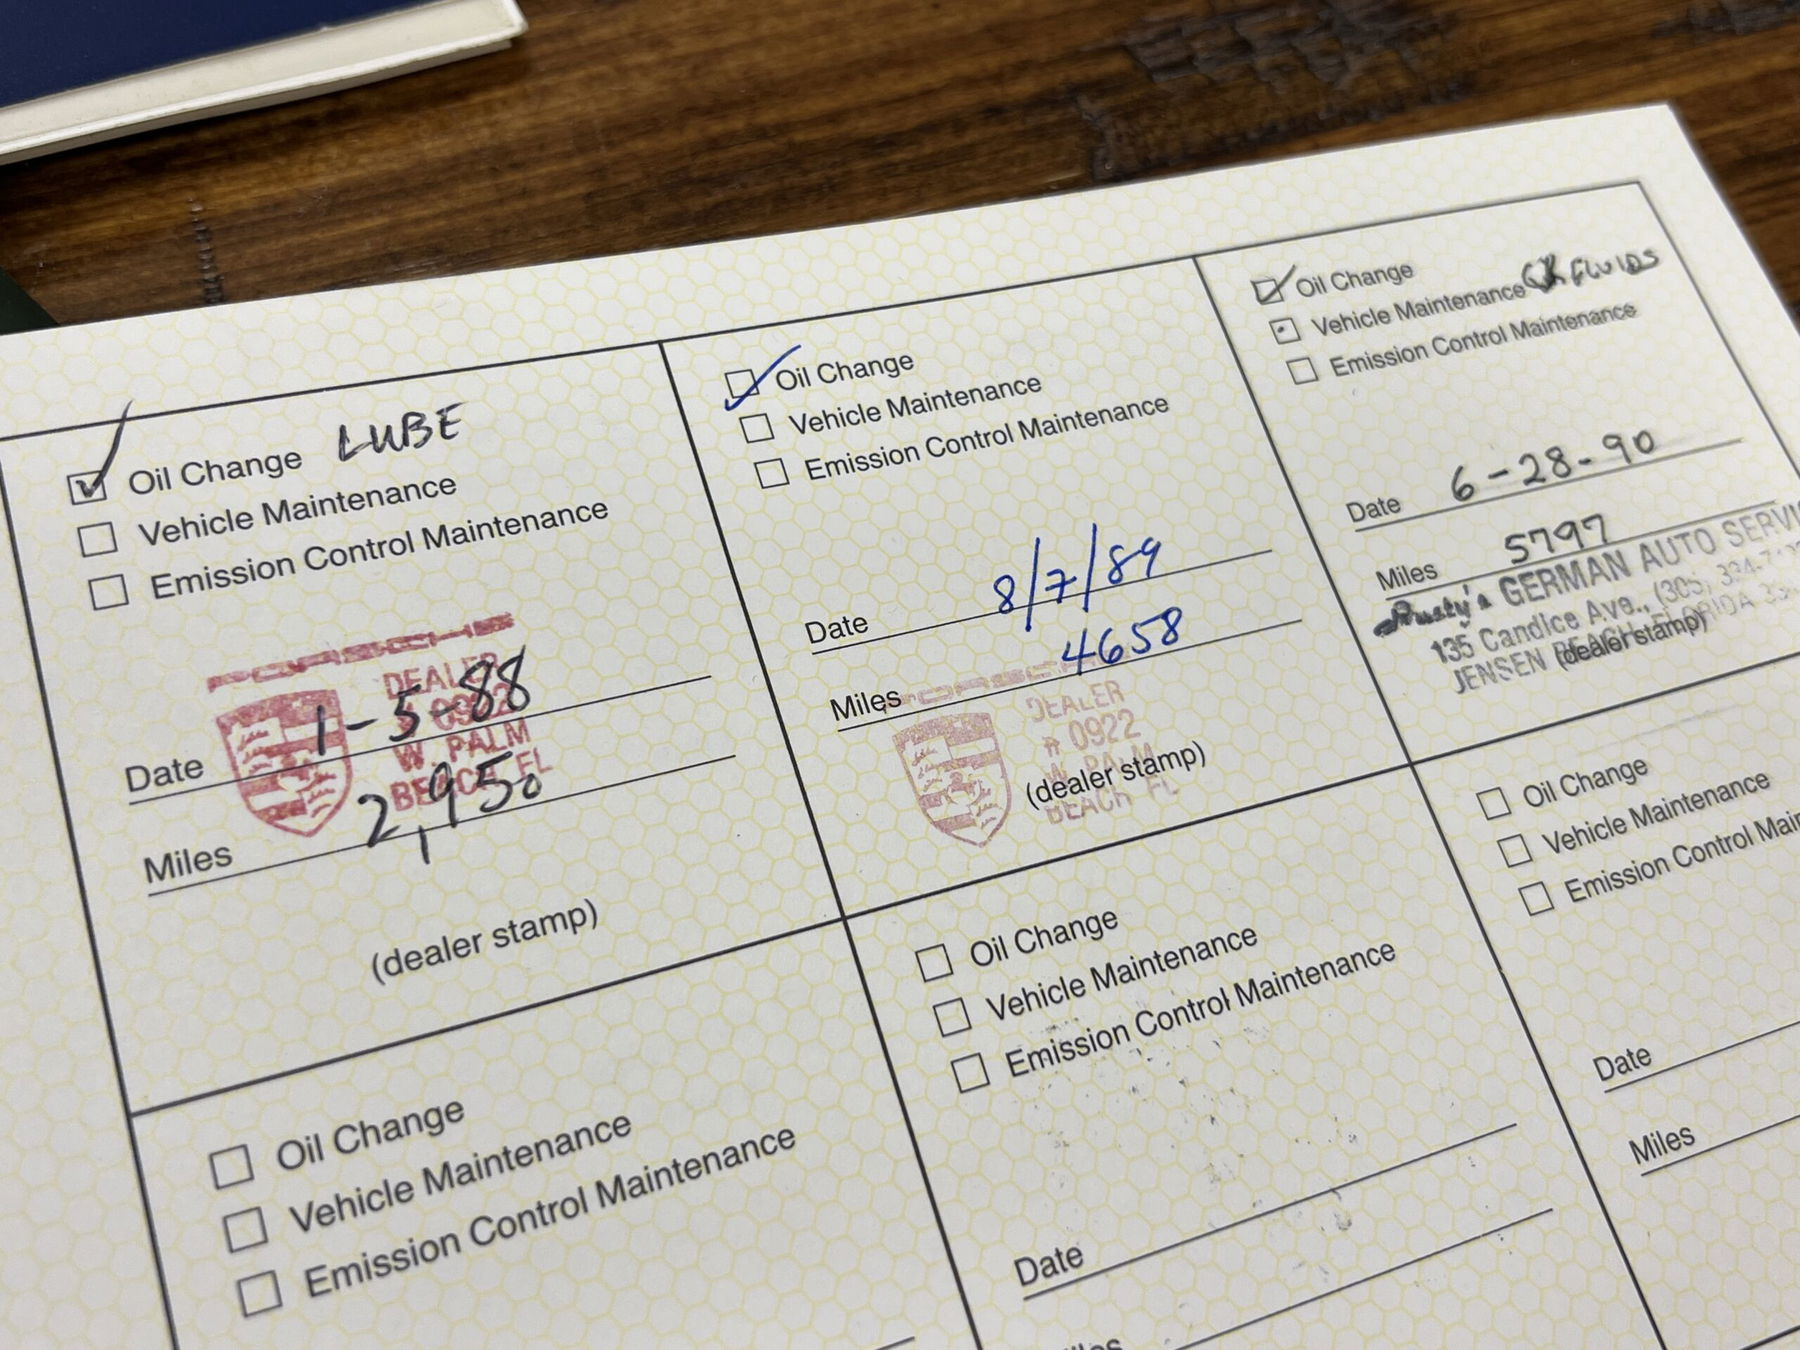 Oil Change LUBE
Vehicle Maintenance
Emission Control Maintenance
DEALER
# 0922
W. PALM
BEACH FL
Date 1-5-88
Miles 2,950
(dealer stamp)
Oil Change
Vehicle Maintenance
Emission Control Maintenance
Date 8/7/89
Miles 4658
DEALER
# 0922
W. PALM
BEACH FL
(dealer stamp)
Oil Change
Vehicle Maintenance CK FLUIDS
Emission Control Maintenance
Date 6-28-90
Miles 5797
Rusty's GERMAN AUTO SERVI
135 Candice Ave., (305)
JENSEN BEACH, FLORIDA
(dealer stamp)
Oil Change
Vehicle Maintenance
Emission Control Maintenance
Oil Change
Vehicle Maintenance
Emission Control Maintenance
Date
Oil Change
Vehicle Maintenance
Emission Control Main
Date
Miles